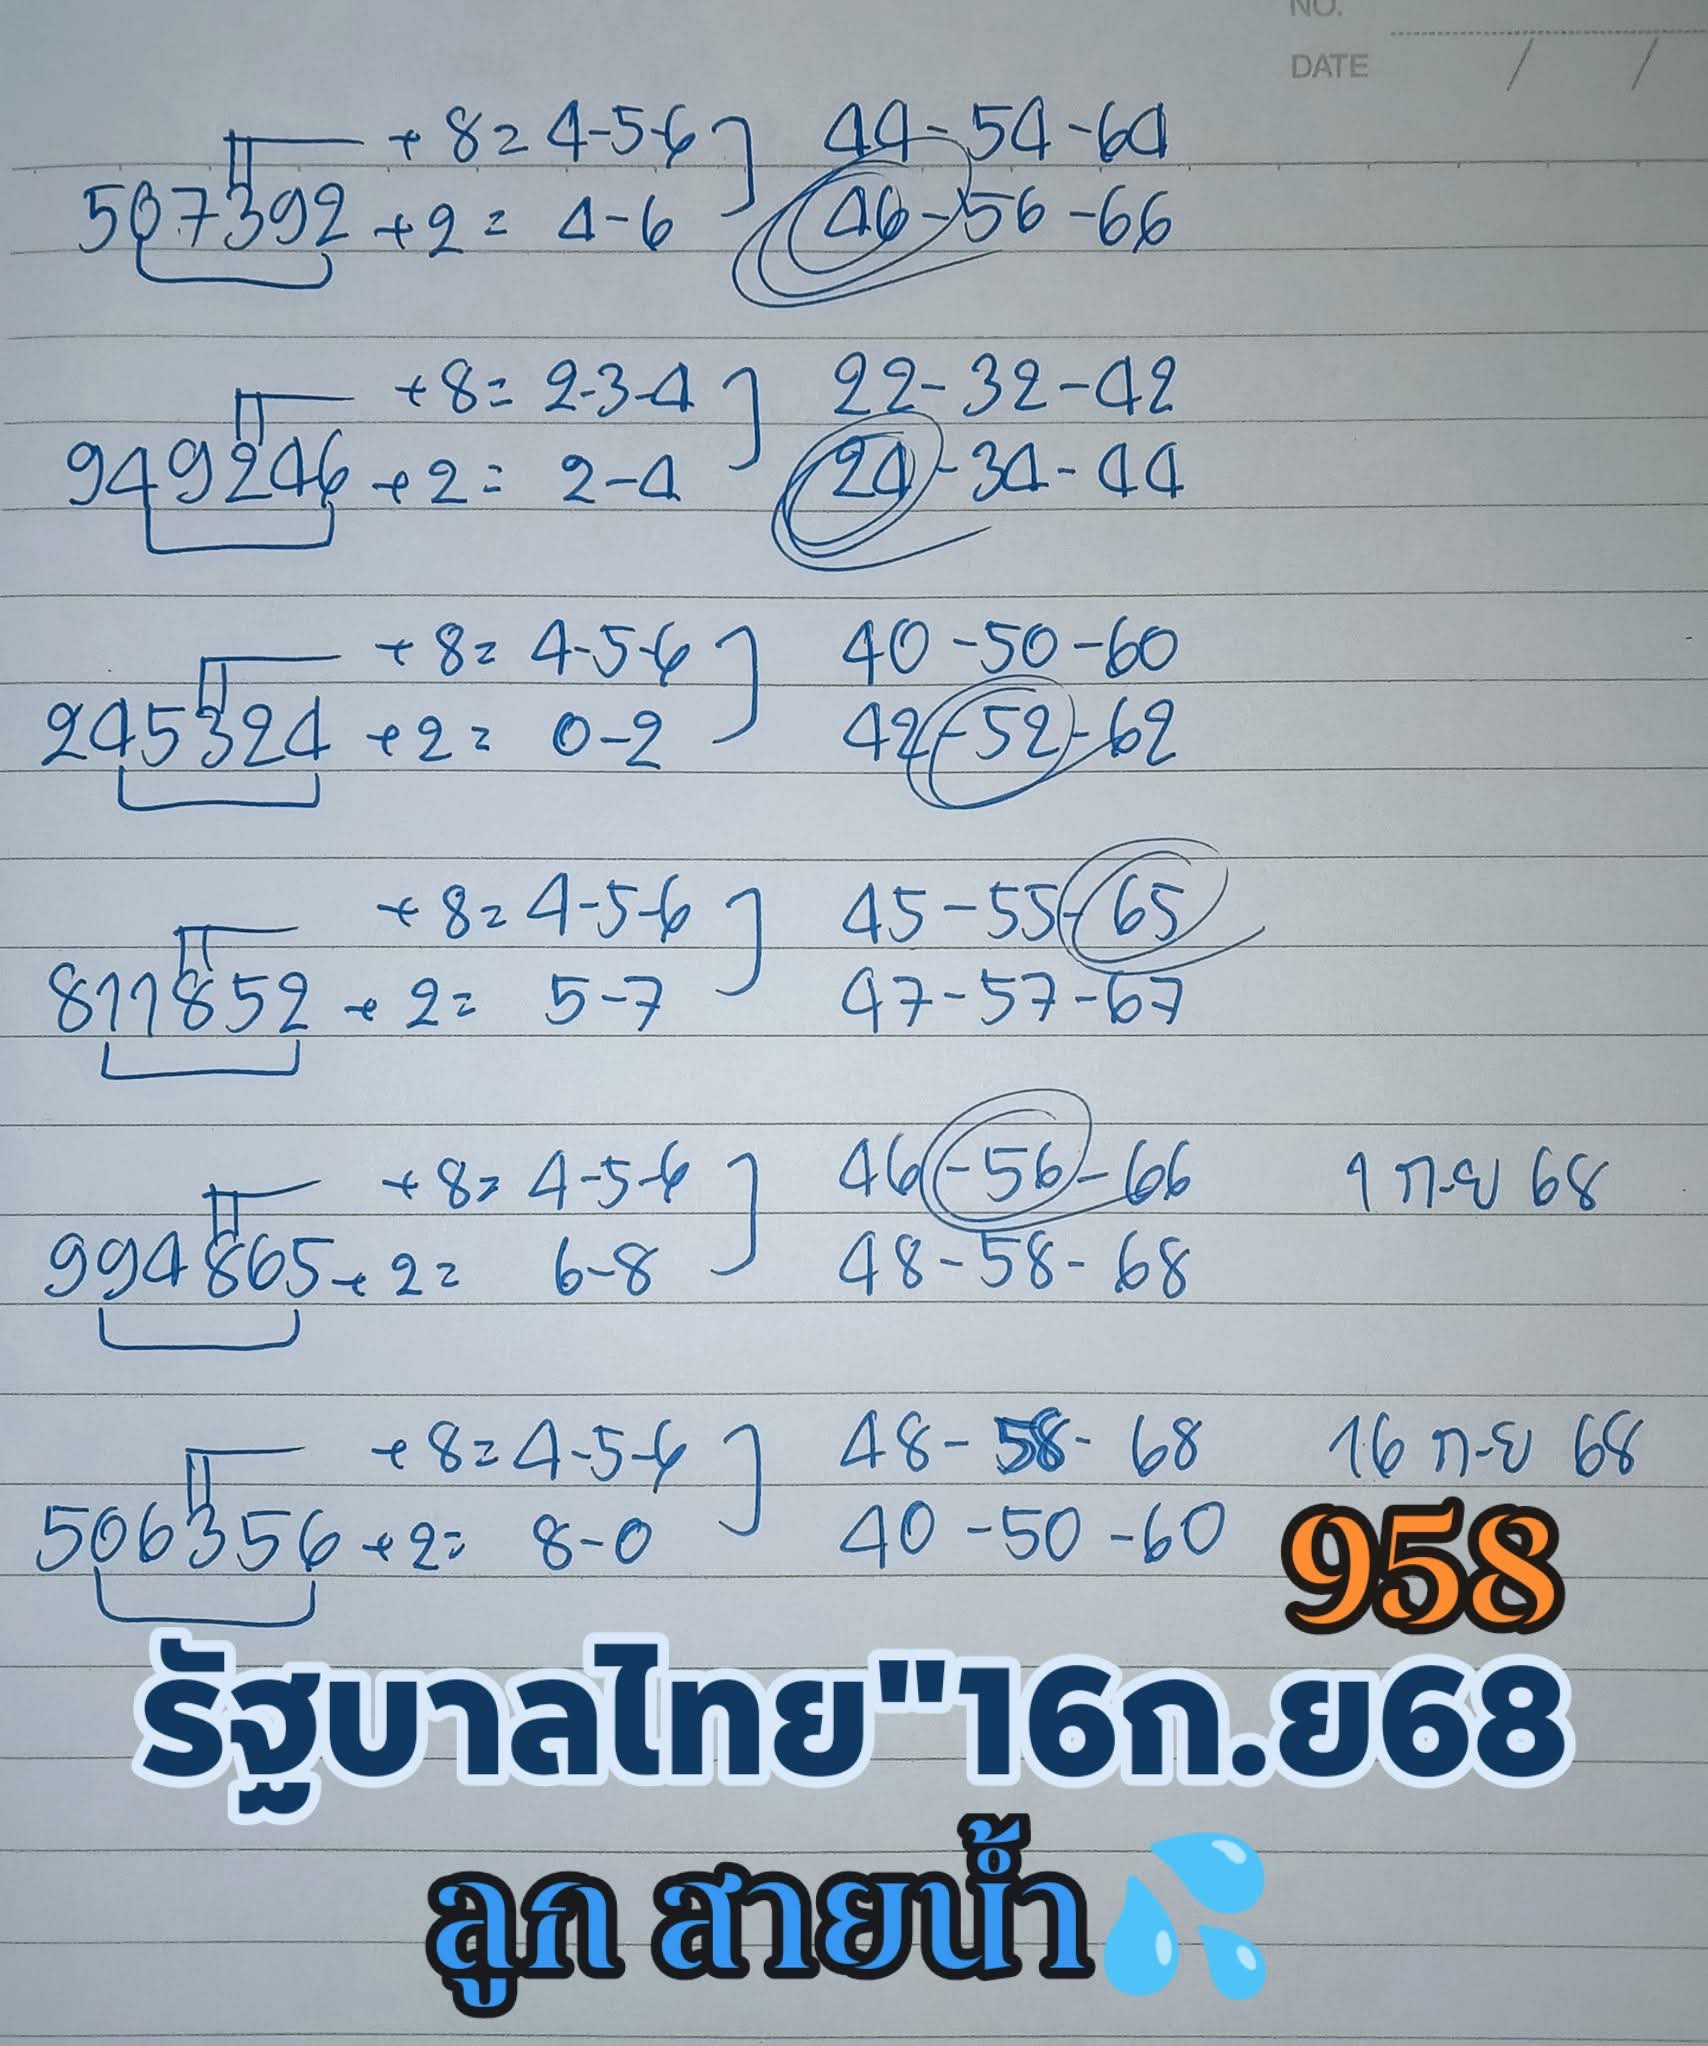 NO.
DATE / /
+ 8 = 4-5-6 44-54-64
507392 + 2 = 4-6 46-56-66
+ 8 = 2-3-4 22-32-42
949246 + 2 = 2-4 24-34-44
+ 8 = 4-5-6 40-50-60
245324 + 2 = 0-2 42-52-62
+ 8 = 4-5-6 45-55-65
811852 + 2 = 5-7 47-57-67
+ 8 = 4-5-6 46-56-66 1 ก.ย 68
994865 + 2 = 6-8 48-58-68
+ 8 = 4-5-6 48-58-68 16 ก.ย 68
506356 + 2 = 8-0 40-50-60 958
รัฐบาลไทย"16ก.ย68
ลูก สายน้ำ